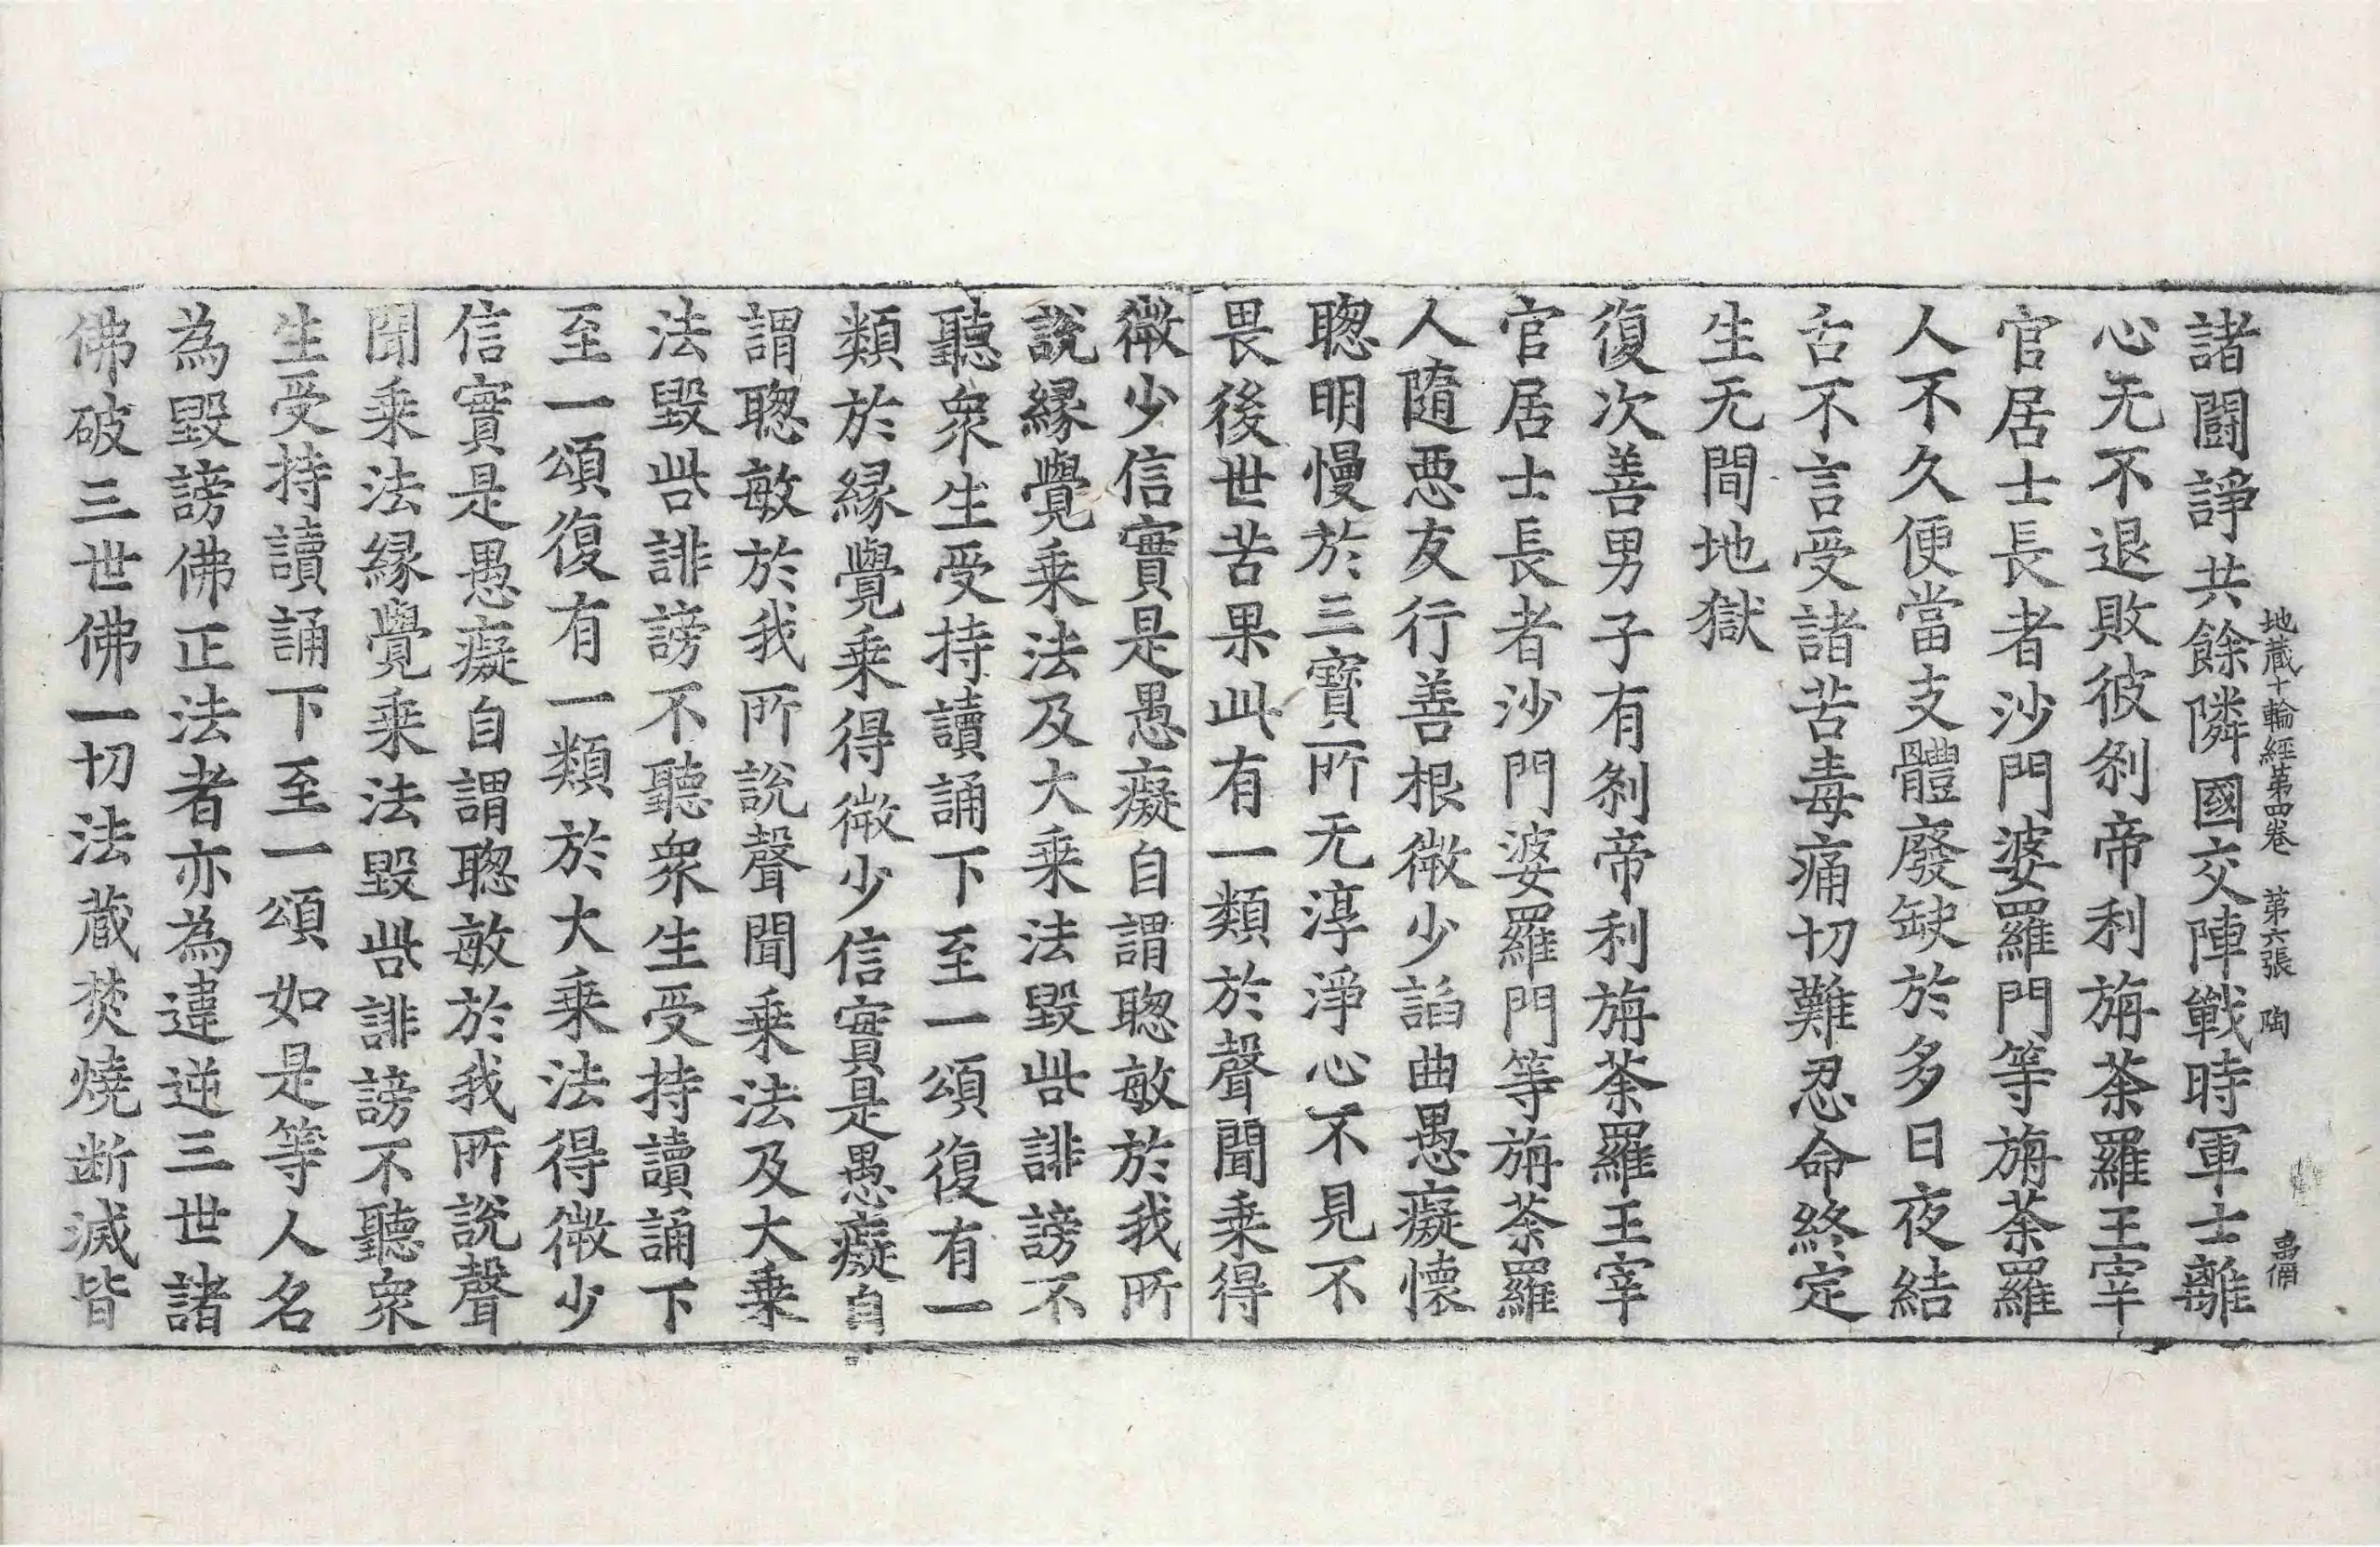 地藏十輪經第四卷 第六張 陶
諸鬪諍共餘隣國交陣戰時軍士離
心无不退敗彼剎帝利旃荼羅王宰
官居士長者沙門婆羅門等旃荼羅
人不久便當支體廢缺於多日夜結
舌不言受諸苦毒痛切難忍命終定
生无間地獄
復次善男子有剎帝利旃荼羅王宰
官居士長者沙門婆羅門等旃荼羅
人隨惡友行善根微少諂曲愚癡懷
聰明慢於三寶所无淳淨心不見不
畏後世苦果此有一類於聲聞乘得
微少信實是愚癡自謂聰敏於我所
說緣覺乘法及大乘法毀呰誹謗不
聽衆生受持讀誦下至一頌復有一
類於緣覺乘得微少信實是愚癡自
謂聰敏於我所說聲聞乘法及大乘
法毀呰誹謗不聽衆生受持讀誦下
至一頌復有一類於大乘法得微少
信實是愚癡自謂聰敏於我所說聲
聞乘法緣覺乘法毀呰誹謗不聽衆
生受持讀誦下至一頌如是等人名
為毀謗佛正法者亦為違逆三世諸
佛破三世佛一切法藏焚燒断滅皆